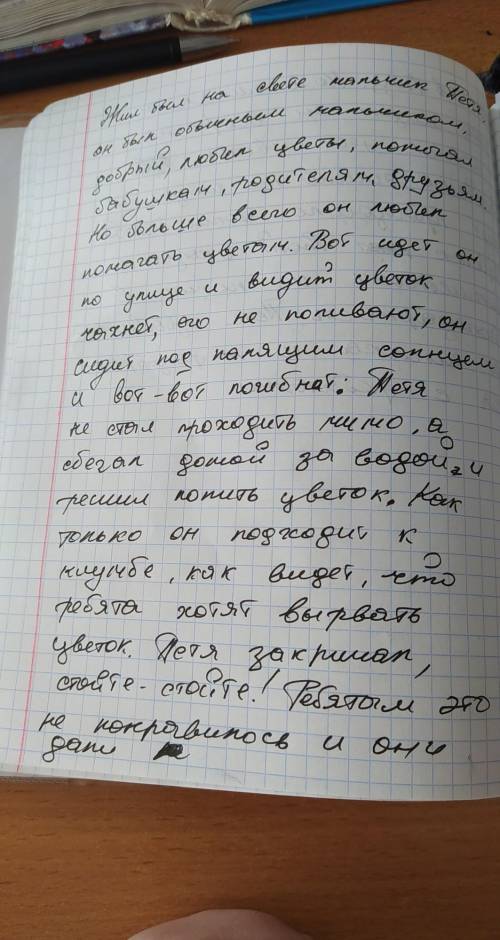 Жил был на свете мальчик Петя.
он был обычным мальчиком,
добрый, любил цветы, помогал
бабушкам, родителям, друзьям.
Но больше всего он любил
помагать цветам. Вот идет он
по улице и видит цветок
чахнет, его не поливают, он
сидит под палящим солнцем
и вот-вот погибнат. Петя
не стал проходить мимо, а
сбегал домой за водой, и
решил полить цветок. Как
только он подходит к
клумбе, как видет, что
ребята хотят вырвать
цветок. Петя закричал,
стойте-стойте! Ребятам это
не понравилось и они
дали